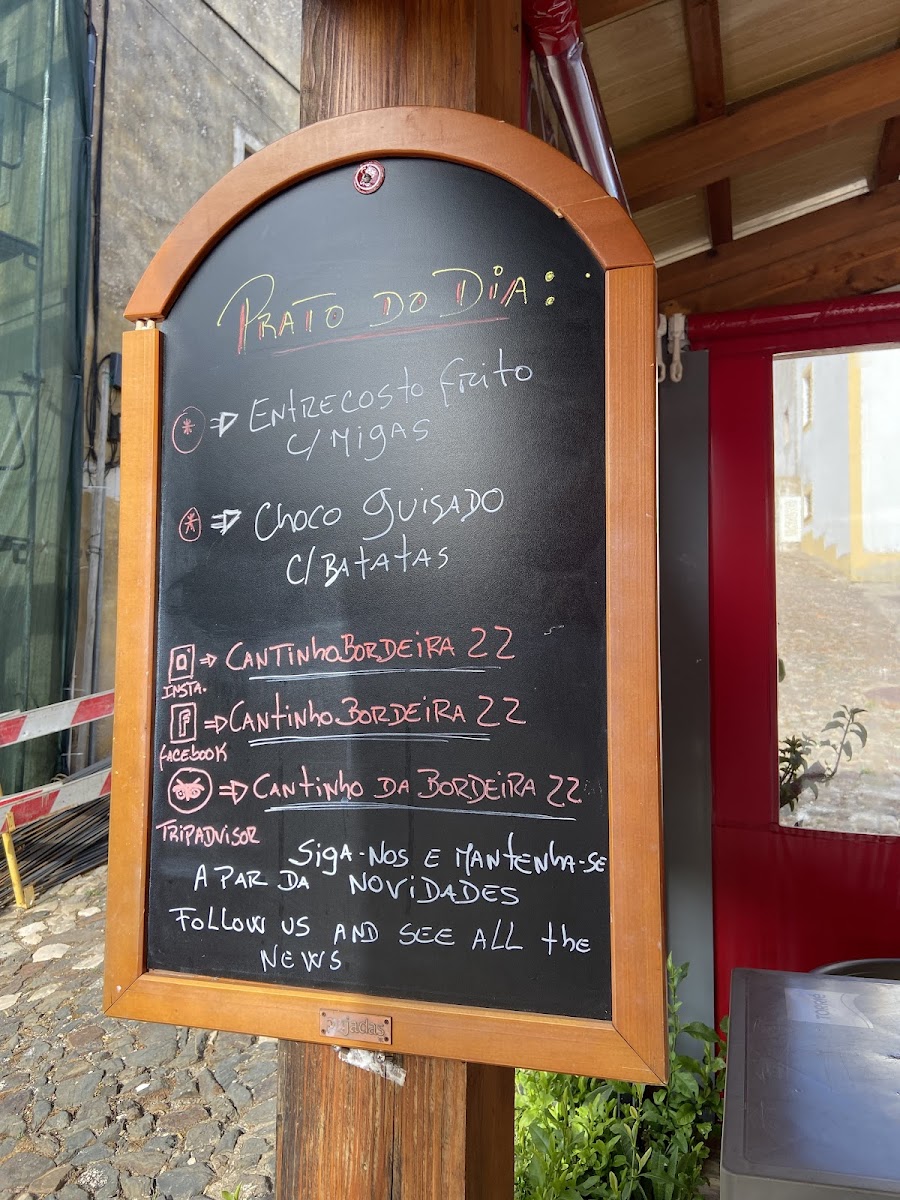 PRATO DO DIA:
* ⇒ ENTRECOSTO FRITO
C/ MIGAS
* ⇒ CHOCO GUISADO
C/ BATATAS
⇒ CANTINHO.BORDEIRA 22
INSTA.
F ⇒ CANTINHO.BORDEIRA 22
FACEBOOK
⇒ CANTINHO DA BORDEIRA 22
TRIPADVISOR
SIGA-NOS E MANTENHA-SE
A PAR DA NOVIDADES
FOLLOW US AND SEE ALL the
NEWS